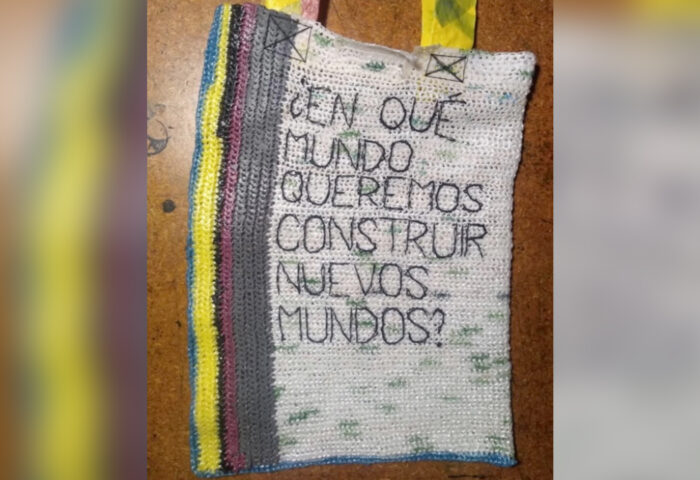 ¿EN QUÉ
MUNDO
QUEREMOS
CONSTRUIR
NUEVOS
MUNDOS?